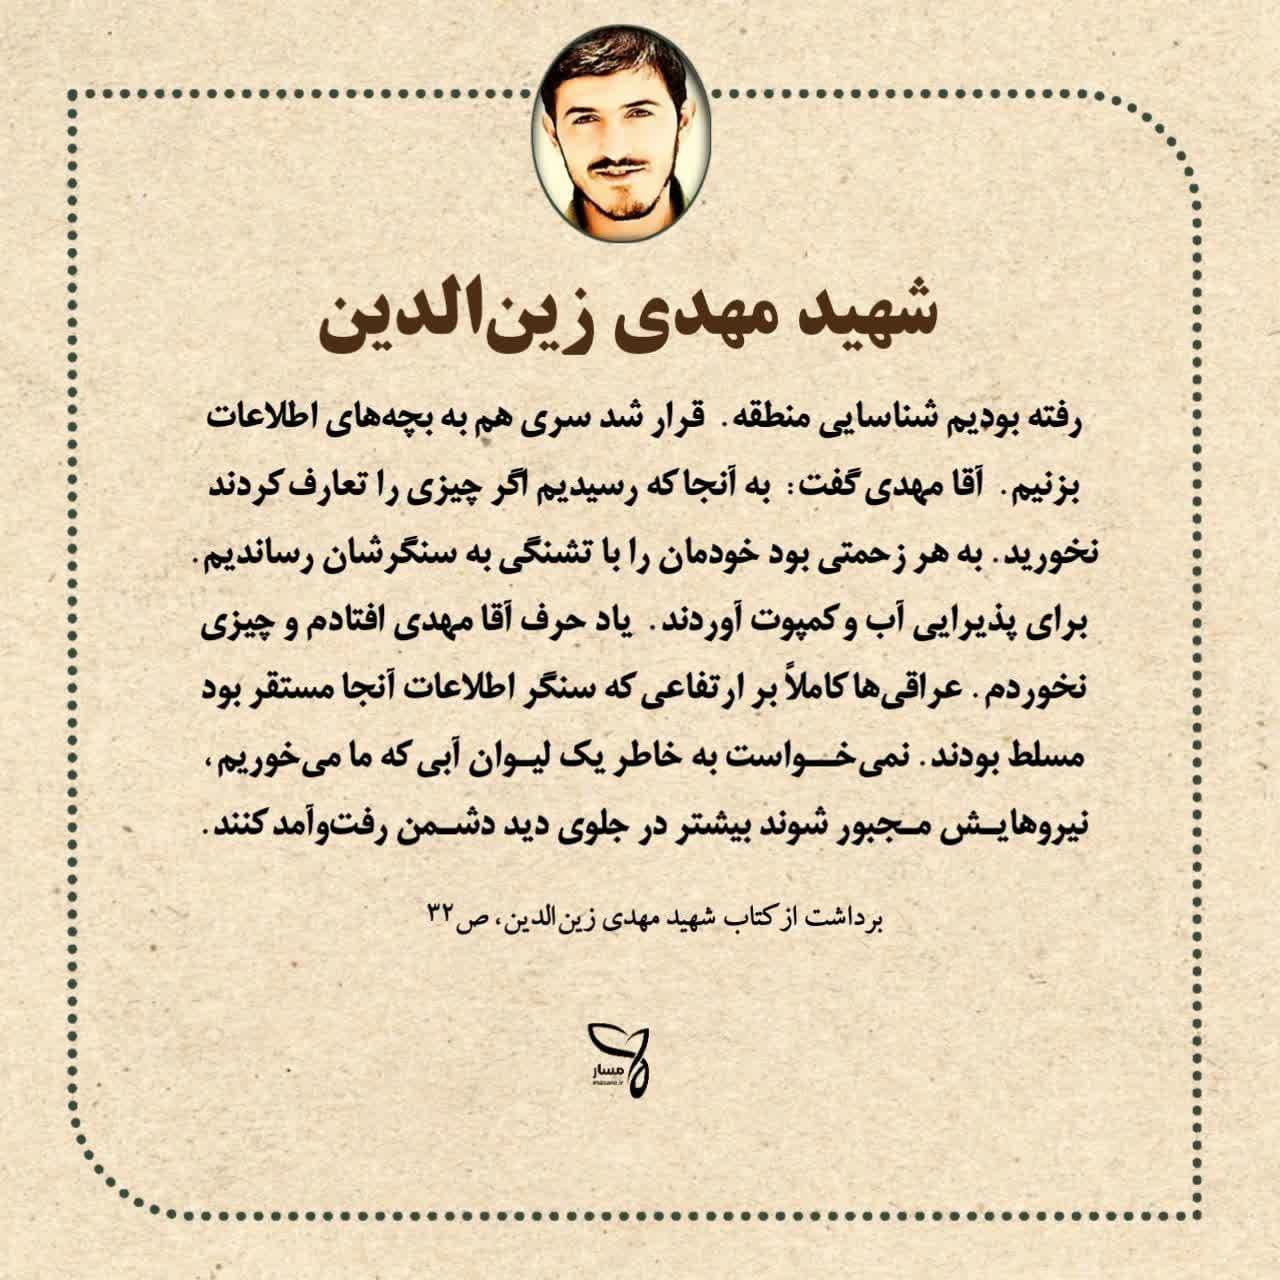 شهید مهدی زین‌الدین
رفته بودیم شناسایی منطقه. قرار شد سری هم به بچه‌های اطلاعات
بزنیم. آقا مهدی گفت: به آنجا که رسیدیم اگر چیزی را تعارف کردند
نخورید. به هر زحمتی بود خودمان را با تشنگی به سنگرشان رساندیم.
برای پذیرایی آب و کمپوت آوردند. یاد حرف آقا مهدی افتادم و چیزی
نخوردم. عراقی‌ها کاملاً بر ارتفاعی که سنگر اطلاعات آنجا مستقر بود
مسلط بودند. نمی‌خـــواست به خاطر یک لیـوان آبی که ما می‌خوریم،
نیروهایـش مـجبور شوند بیشتر در جلوی دید دشـمن رفت‌وآمد کنند.
برداشت از کتاب شهید مهدی زین‌الدین، ص۳۲
مسار
masare.ir